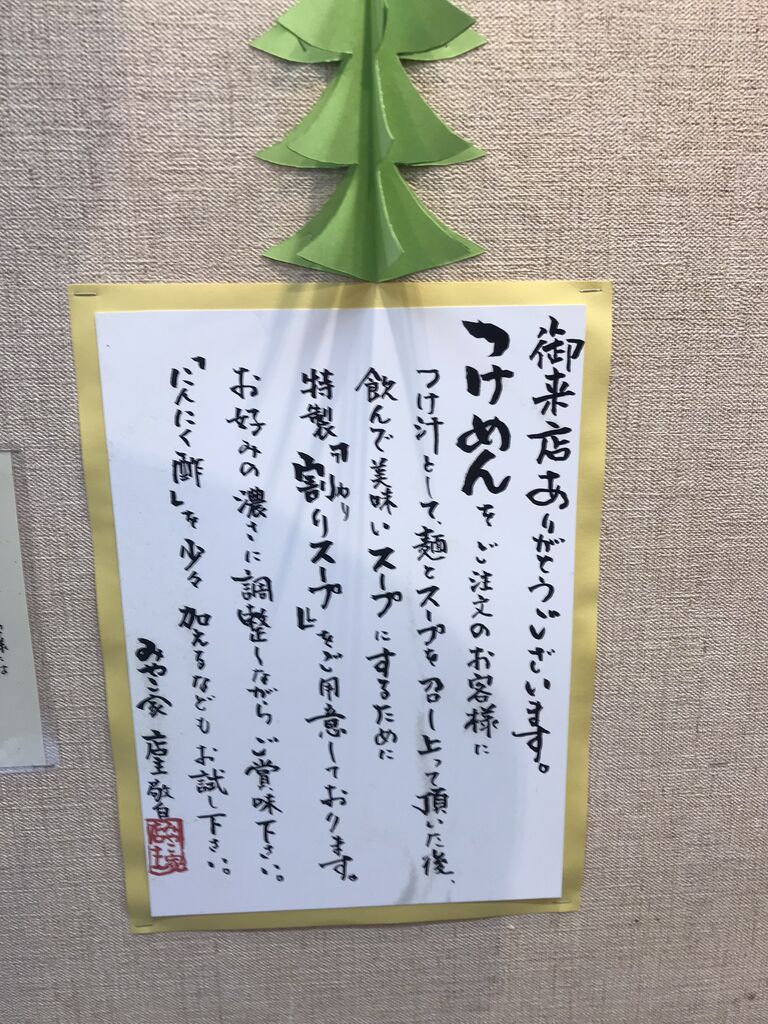 御来店ありがとうございます。
つけめんをご注文のお客様に
つけ汁として、麺とスープを召し上って頂いた後、
飲んで美味いスープにするために
特製『割りスープ』をご用意しております。
わり
お好みの濃さに調整しながらご賞味下さい。
「にんにく酢」を少々加えるなどもお試し下さい。
みやこ家 店主 敬白